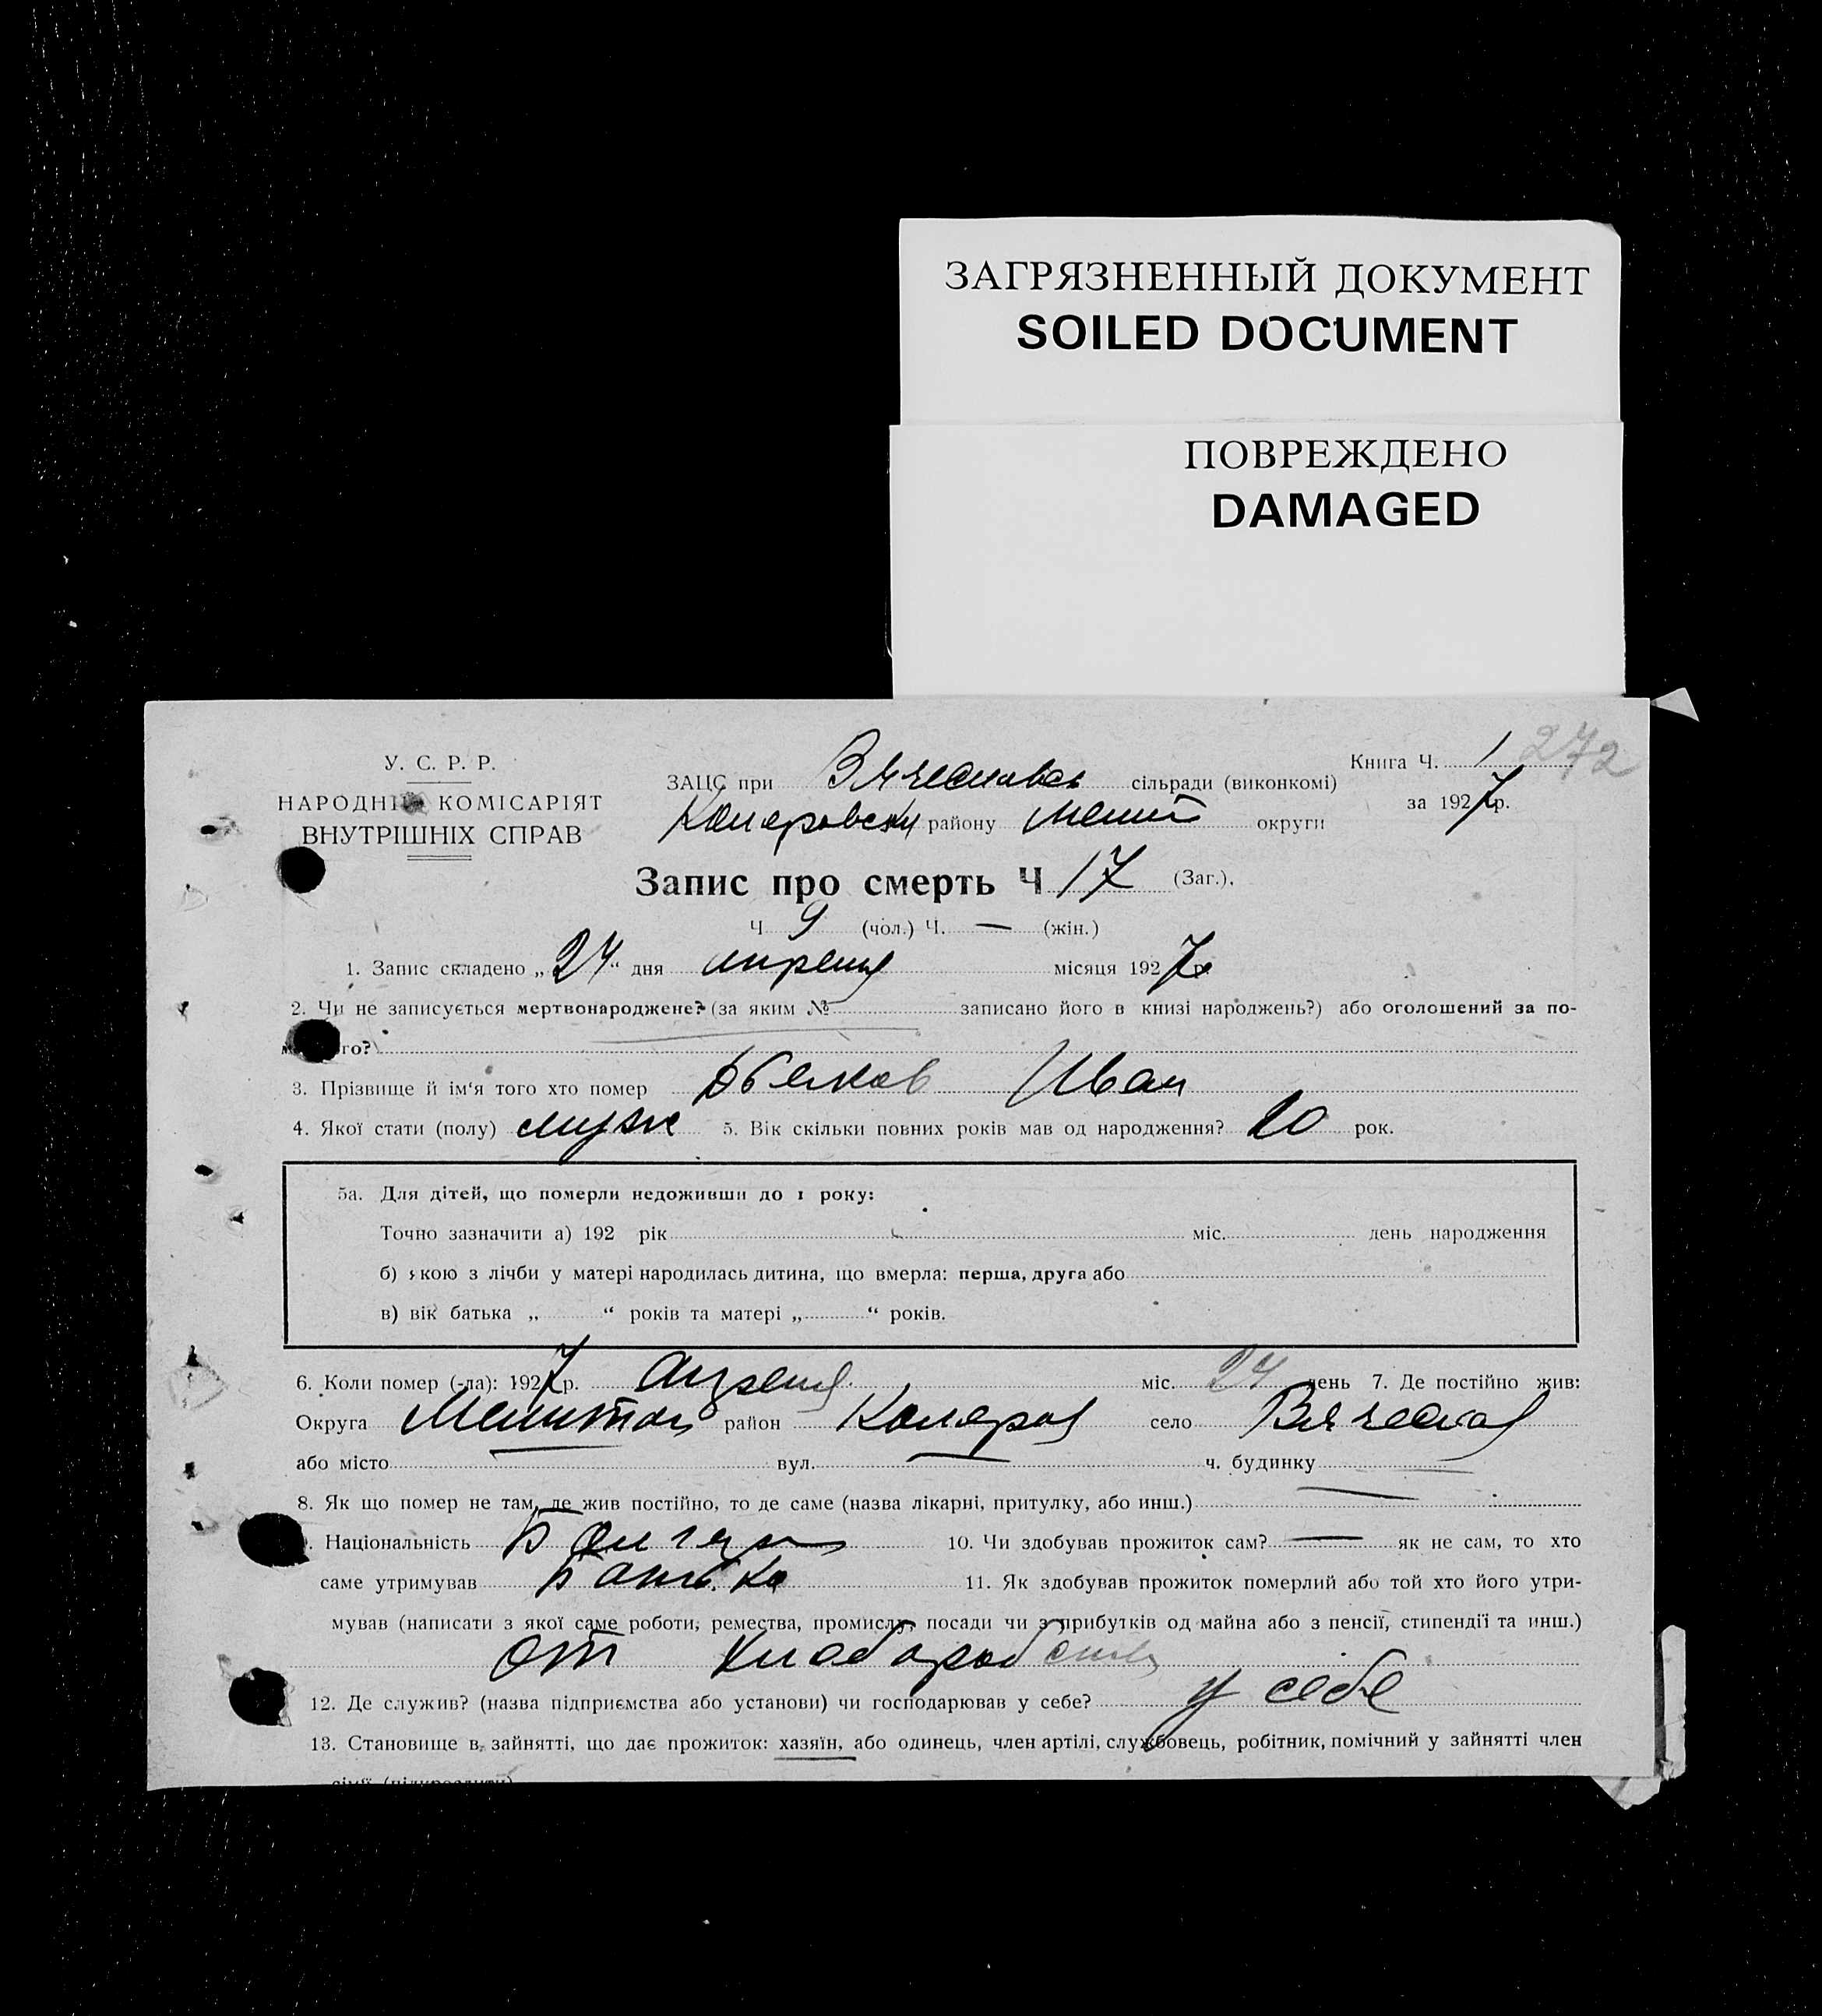 ЗАГРЯЗНЕННЫЙ ДОКУМЕНТ
SOILED DOCUMENT
ПОВРЕЖДЕНО
DAMAGED
У. С. Р. Р.
НАРОДНІЙ КОМІСАРІЯТ
ВНУТРІШНІХ СПРАВ
Книга Ч. 1 272
за 1927 р.
ЗАЦС при сільради (виконкомі)
району округи
Запис про смерть Ч 17 (Заг.).
Ч 9 (чол.) Ч. — (жін.)
1. Запис складено „24“ дня апреля місяця 1927 р.
2. Чи не записується мертвонароджене? (за яким № записано його в книзі народжень?) або оголошений за по-
го?
3. Прізвище й ім‘я того хто помер Иван
4. Якої стати (полу) муж 5. Вік скільки повних років мав од народження? рок.
5а. Для дітей, що померли недоживши до 1 року:
Точно зазначити а) 192 рік міс. день народження
б) якою з лічби у матері народилась дитина, що вмерла: перша, друга або
в) вік батька „ “ років та матері „ “ років.
6. Коли помер (-ла): 1927 р. апреля міс. 24 день 7. Де постійно жив:
Округа район Коляров село
або місто вул. ч. будинку
8. Як що помер не там, де жив постійно, то де саме (назва лікарні, притулку, або инш.)
Національність Болгар 10. Чи здобував прожиток сам? — як не сам, то хто
саме утримував Батько 11. Як здобував прожиток померлий або той хто його утри-
мував (написати з якої саме роботи, ремества, промислу, посади чи з прибутків од майна або з пенсії, стипендії та инш.)
от
12. Де служив? (назва підприємства або установи) чи господарював у себе? у себе
13. Становище в зайнятті, що дає прожиток: хазяїн, або одинець, член артілі, службовець, робітник, помічний у зайнятті член